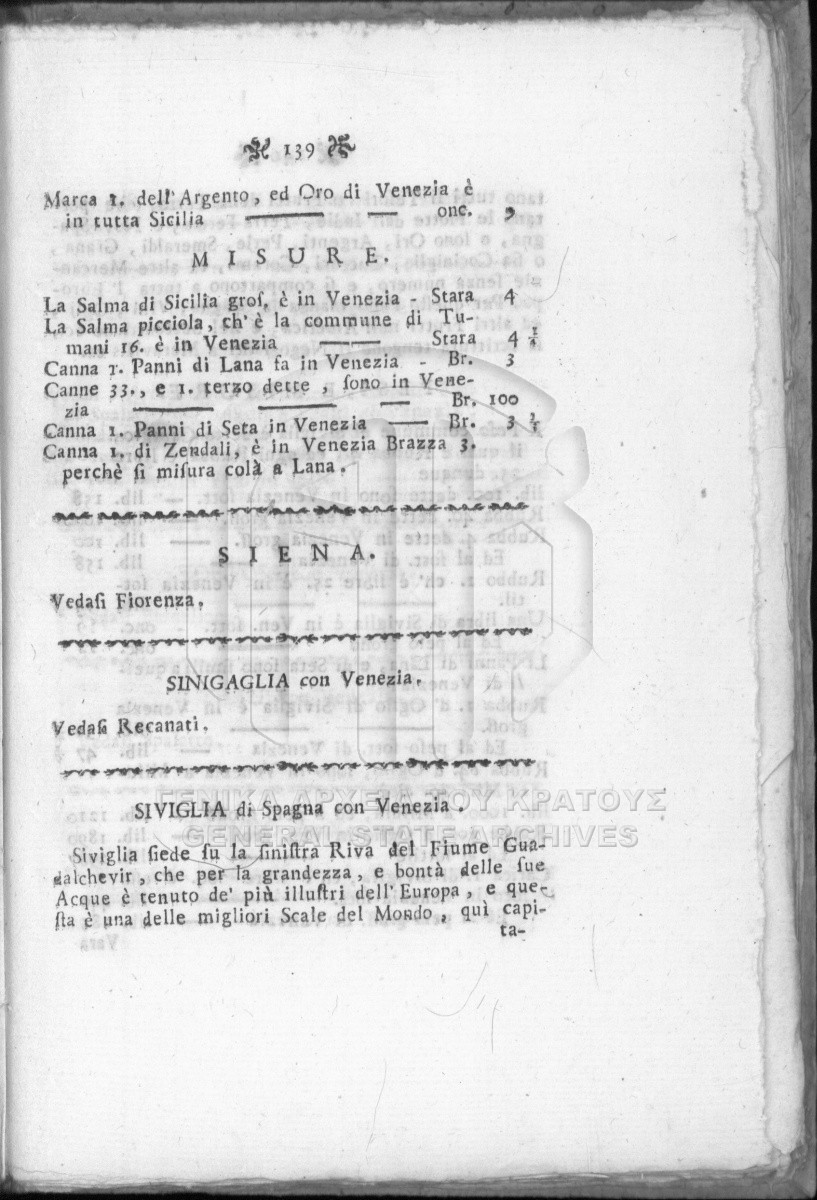 139
Marca 1. dell'Argento, ed Oro di Venezia è
in tutta Sicilia onc. 9
MISURE.
La Salma di Sicilia groſ, è in Venezia - Stara 4
La Salma picciola, ch'è la commune di Tu-
mani 16. è in Venezia Stara 4
Canna 1. Panni di Lana fa in Venezia - Br. 3
Canne 33., e 1. terzo dette, ſono in Vene-
zia Br. 100
Canna 1. Panni di Seta in Venezia Br. 3
Canna 1. di Zendali, è in Venezia Brazza 3.
perchè ſi miſura colà a Lana.
SIENA.
Vedaſi Fiorenza.
SINIGAGLIA con Venezia.
Vedaſi Recanati.
SIVIGLIA di Spagna con Venezia.
ΓΕΝΙΚΑ ΑΡΧΕΙΑ ΤΟΥ ΚΡΑΤΟΥΣ
GENERAL STATE ARCHIVES
Siviglia ſiede ſu la ſiniſtra Riva del Fiume Gua-
dalchevir, che per la grandezza, e bontà delle ſue
Acque è tenuto de' più illuſtri dell'Europa, e que-
ſta è una delle migliori Scale del Mondo, quì capi-
ta-